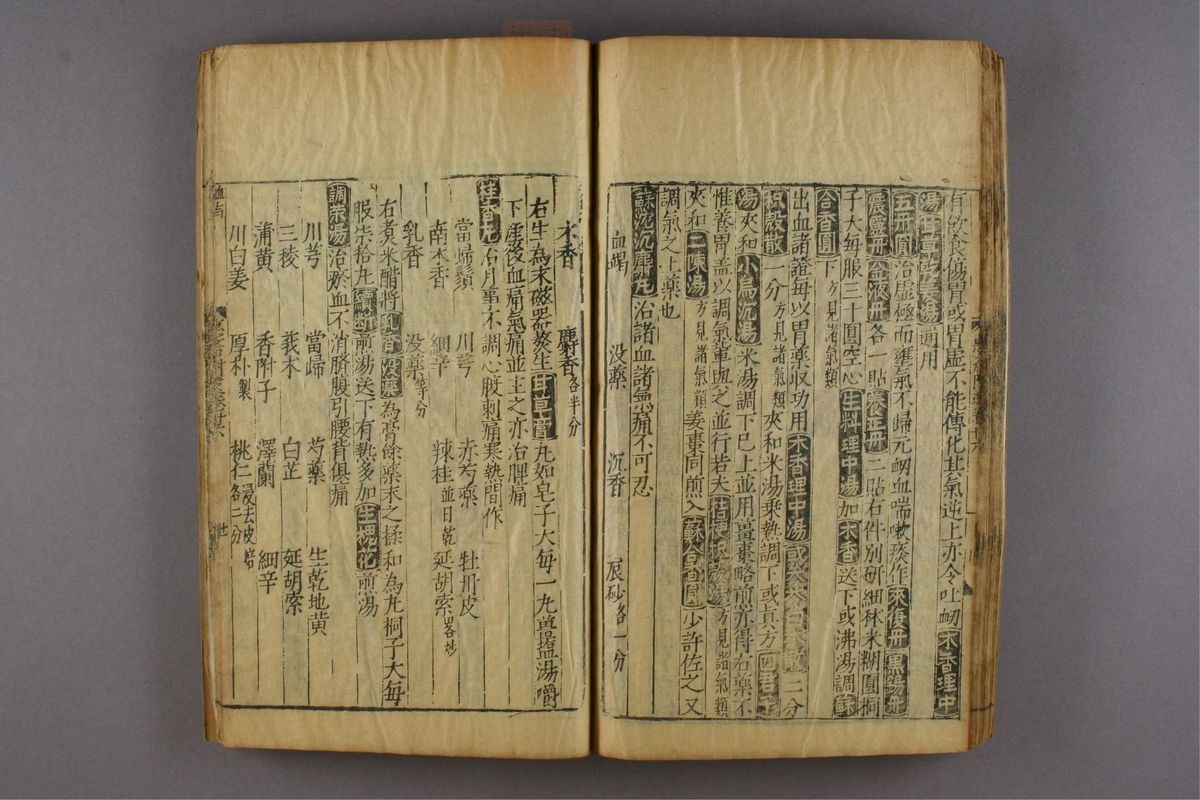 有飲食傷胃或胃虛不能傳化其氣逆上亦令吐衂木香理中
湯甘草乾姜湯通用
五丹圓治虛極而壅氣不歸元衂血喘嗽痰作來復丹黑錫丹
震靈丹金液丹各一貼養正丹二貼右件別研細秫米糊圓桐
子大每服三十圓空心生料理中湯加木香送下或沸湯調蘇
合香圓下方見諸氣類
出血諸證每以胃藥收功用木香理中湯或參苓白朮散二分
枳殼散一分方見諸氣類夾和米湯乗熱調下或真方四君子
湯夾和小烏沉湯米湯調下已上並用薑棗略煎亦得右藥不
惟養胃盖以調氣輩與之並行若夫桔梗枳殼湯方見諸氣類
夾和二陳湯方見諸氣類姜棗同煎入蘇合香圓少許佐之又
調氣之上藥也
蘇沉沉麝丸治諸血諸氣痛不可忍
血竭 没藥 沉香 辰砂各一分
木香 麝香各半分
右生為末磁器熬生甘草膏丸如皂子大每一丸薑塩湯嚼
下產後血痛氣痛並主之亦治脾痛
桂香丸治月事不調心腹刺痛寒熱間作
當歸鬚 川芎 赤芍藥 牡丹皮
南木香 細辛 辣桂並日乾 延胡索畧炒
乳香 没藥等分
右煮米醋將乳香没藥為膏餘藥末之揉和為丸桐子大每
服柒拾丸續斷煎湯送下有熱多加生槐花煎湯
調榮湯治瘀血不消臍腹引腰背俱痛
川芎 當歸 芍藥 生乾地黄
三稜 莪朮 白芷 延胡索
蒲黄 香附子 澤蘭 細辛
川白姜 厚朴製 桃仁浸去皮焙各二分